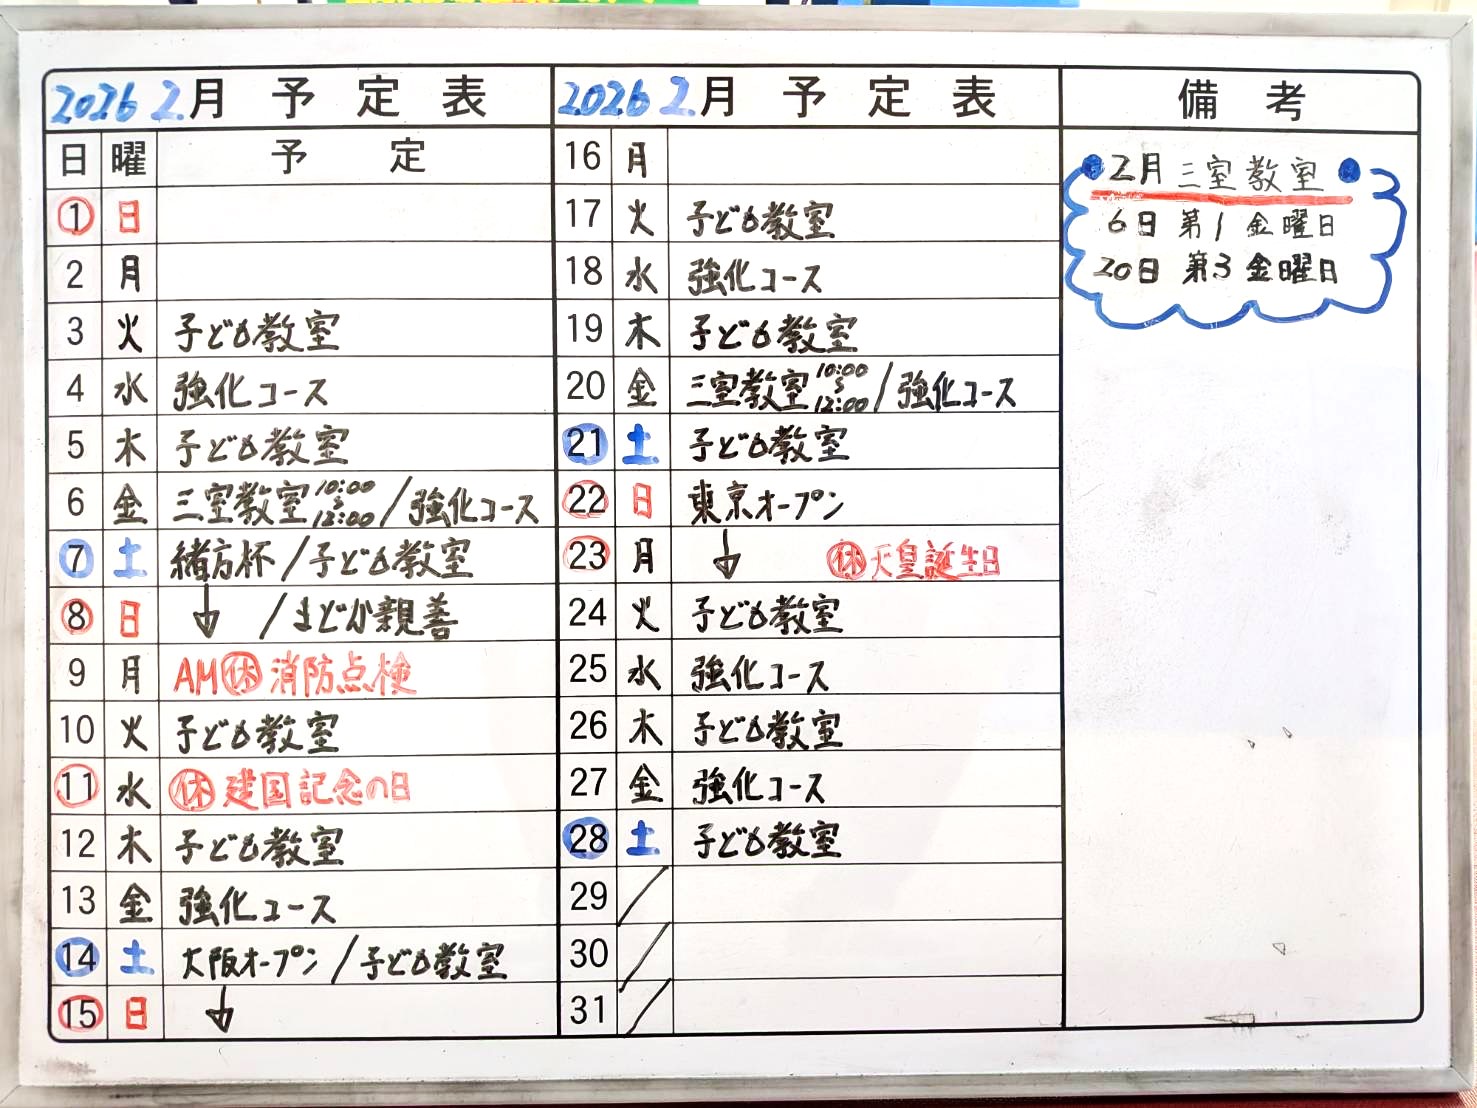 2026 2.月 予定表
日 曜 予定
1 日
2 月
3 火 子ども教室
4 水 強化コース
5 木 子ども教室
6 金 三室教室 10:00〜12:00 / 強化コース
7 土 緒方杯 / 子ども教室
8 日 ↓ / まどか親善
9 月 AM休 消防点検
10 火 子ども教室
11 水 休 建国記念の日
12 木 子ども教室
13 金 強化コース
14 土 大阪オープン / 子ども教室
15 日 ↓
2026 2.月 予定表
16 月
17 火 子ども教室
18 水 強化コース
19 木 子ども教室
20 金 三室教室 10:00〜12:00 / 強化コース
21 土 子ども教室
22 日 東京オープン
23 月 ↓ 休 天皇誕生日
24 火 子ども教室
25 水 強化コース
26 木 子ども教室
27 金 強化コース
28 土 子ども教室
29
30
31
備考
2月 三室教室
6日 第1 金曜日
20日 第3 金曜日